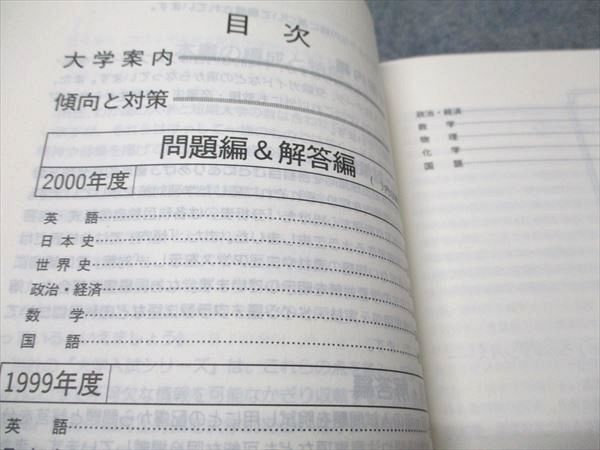 目次
大学案内
傾向と対策
問題編&解答編
2000年度
英語
日本史
世界史
政治・経済
数学
国語
1999年度
英語
政治・経済
数学
物理
化学
国語